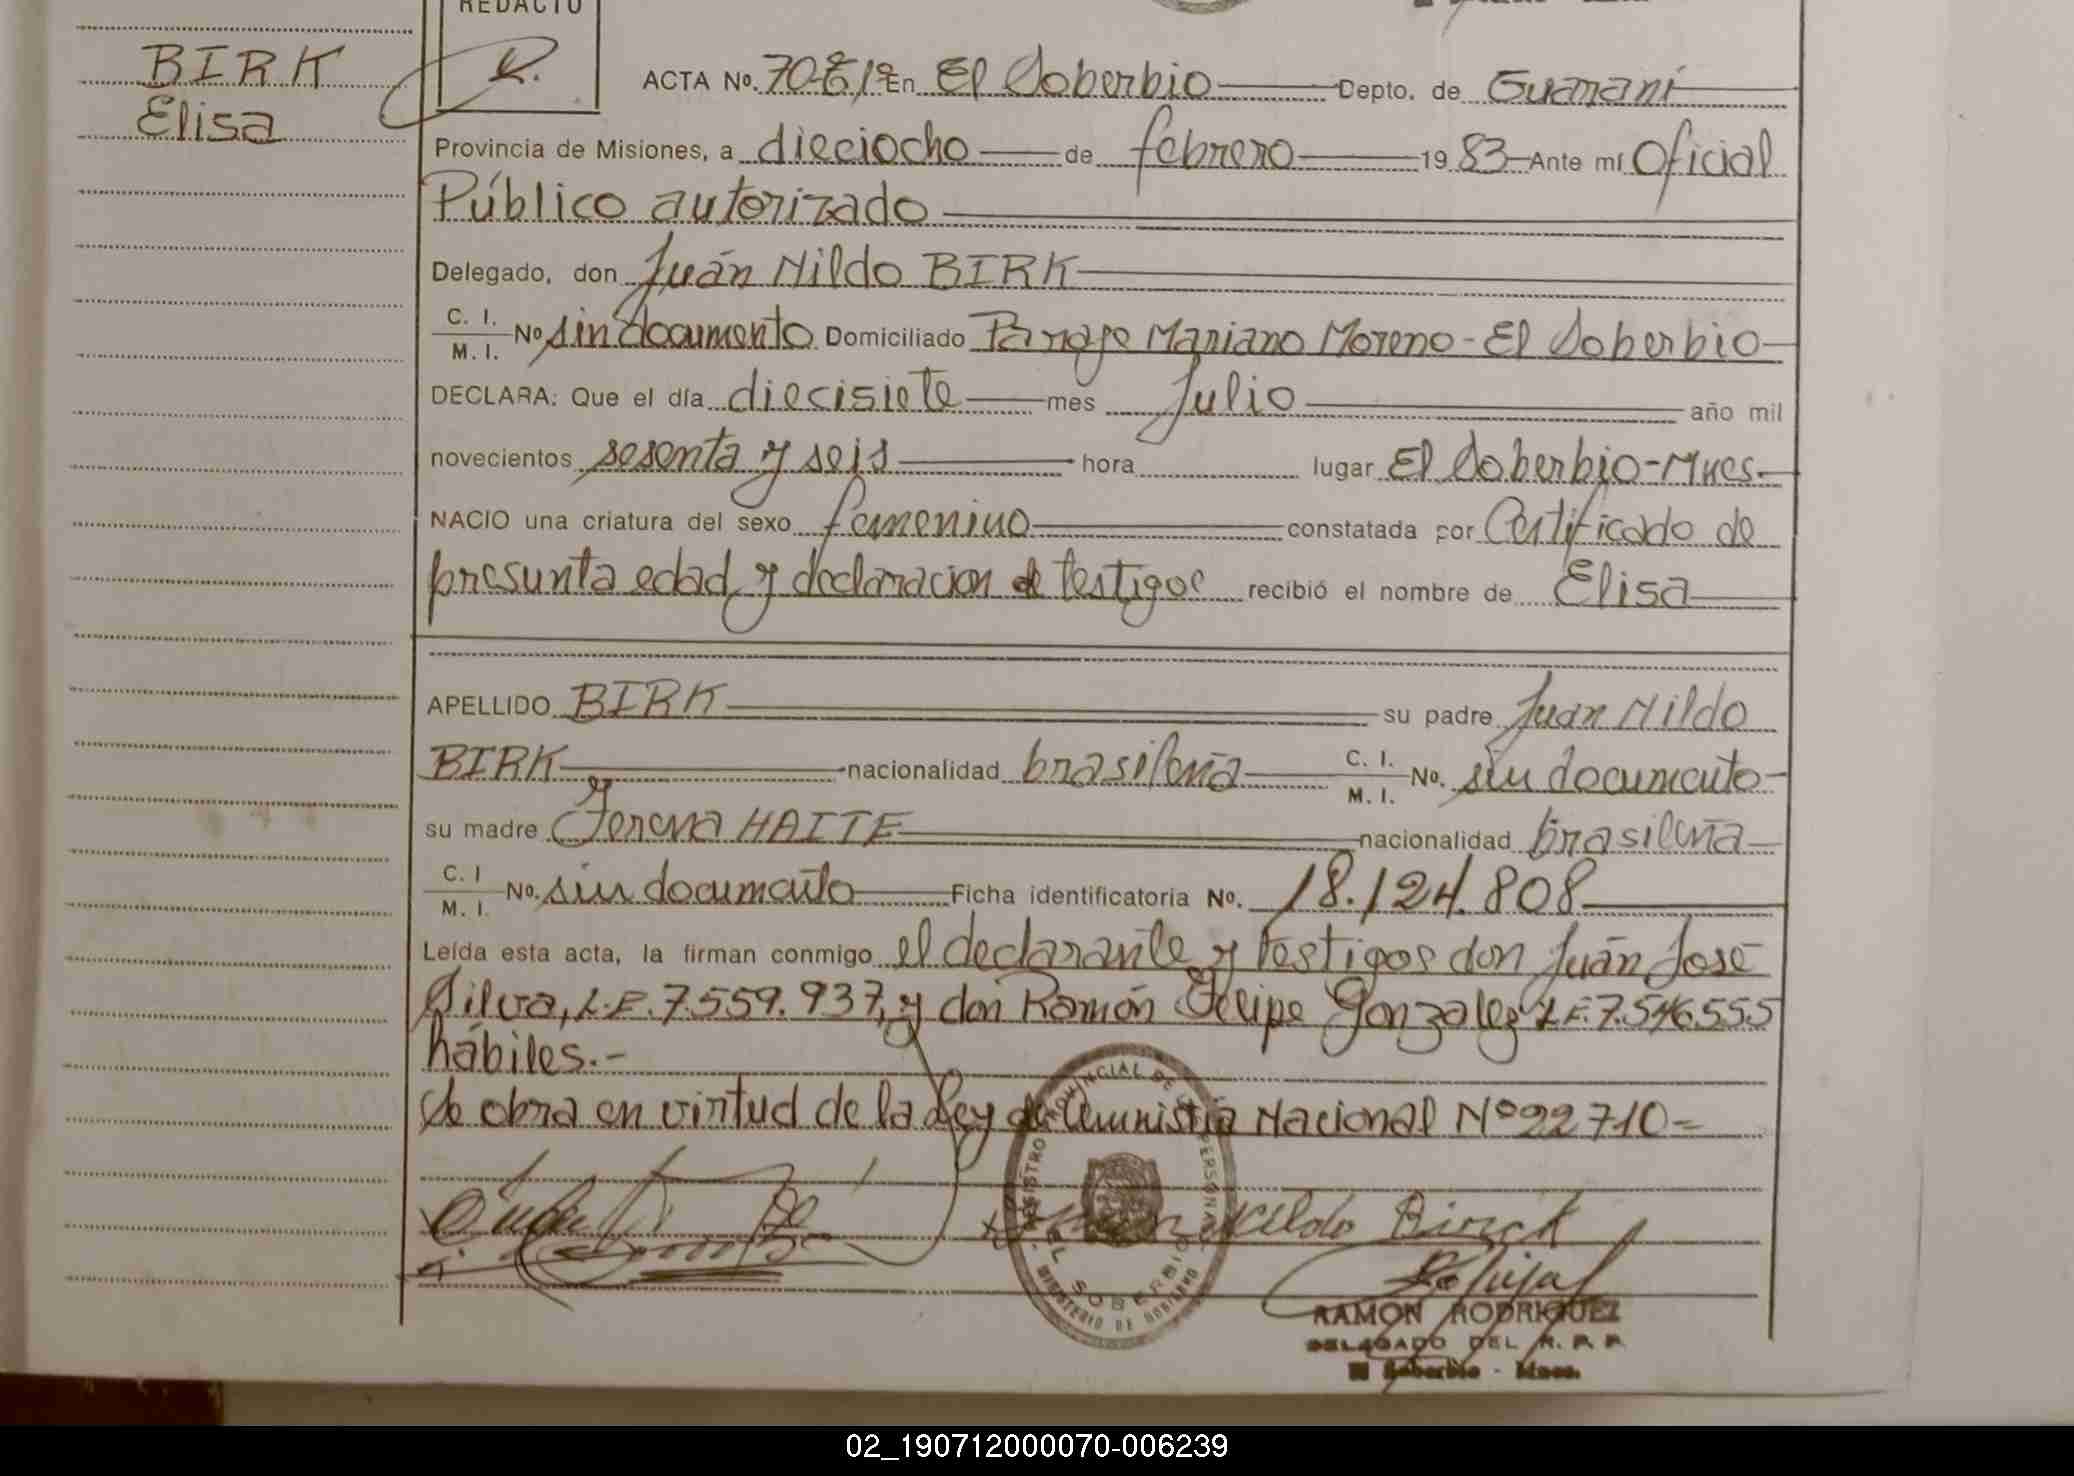 REDACTO
BIRK
Elisa
ACTA Nº. 70- En El Soberbio Depto. de Guaraní
Provincia de Misiones, a dieciocho de febrero 1983 Ante mí Oficial
Público autorizado
Delegado, don Juán Nildo BIRK
C. I.
M. I. Nº sin documento Domiciliado Paraje Mariano Moreno - El Soberbio
DECLARA: Que el día diecisiete mes Julio año mil
novecientos sesenta y seis hora lugar El Soberbio-Mnes
NACIO una criatura del sexo femenino constatada por Certificado de
presunta edad y declaracion de testigos recibió el nombre de Elisa
APELLIDO BIRK su padre Juan Nildo
BIRK nacionalidad brasileña C. I. M. I. No. sin documento
y
su madre HAITE nacionalidad brasileña
C. I M. I. No. sin documento Ficha identificatoria No. 18.124.808
Leída esta acta, la firman conmigo el declarante y testigos don Juán José
Silva, L.E. 7.559.937, y don Ramón Felipe Gonzalez L.E. 7.546.555
hábiles.-
Se obra en virtud de la Ley de Amnistia Nacional Nº 22710=
REGISTRO PROVINCIAL DE PERSONAS
EL SOBERBIO
MINISTERIO DE GOBIERNO
Nildo Birck
RAMON RODRIGUEZ
DELEGADO DEL R. P. P.
El Soberbio - Mnes.
02_190712000070-006239